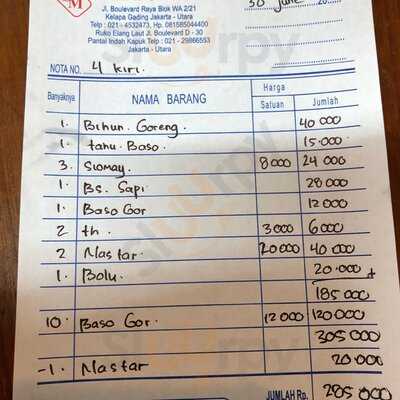 M
Jl. Boulevard Raya Blok WA 2/21
Kelapa Gading Jakarta - Utara
Telp : 021 - 4532473, Hp. 081585044400
Ruko Elang Laut Jl. Boulevard D - 30
Pantai Indah Kapuk Telp : 021 - 29866553
Jakarta - Utara
30 June 20
NOTA NO. 4 kiri.
Banyaknya NAMA BARANG Harga Satuan Jumlah
1. Bihun Goreng. 40 000
1. tahu Baso. 15.000
3. Siomay. 8 000 24 000
1. Bs. Sapi 28 000
1. Baso Gor 12 000
2 th. 3 000 6 000
2 Nastar. 20 000 40 000
1. Bolu. 20.000 +
185 000
10. Baso Gor. 12 000 120 000
305 000
-1. Nastar 20.000
JUMLAH Rp. 285 000